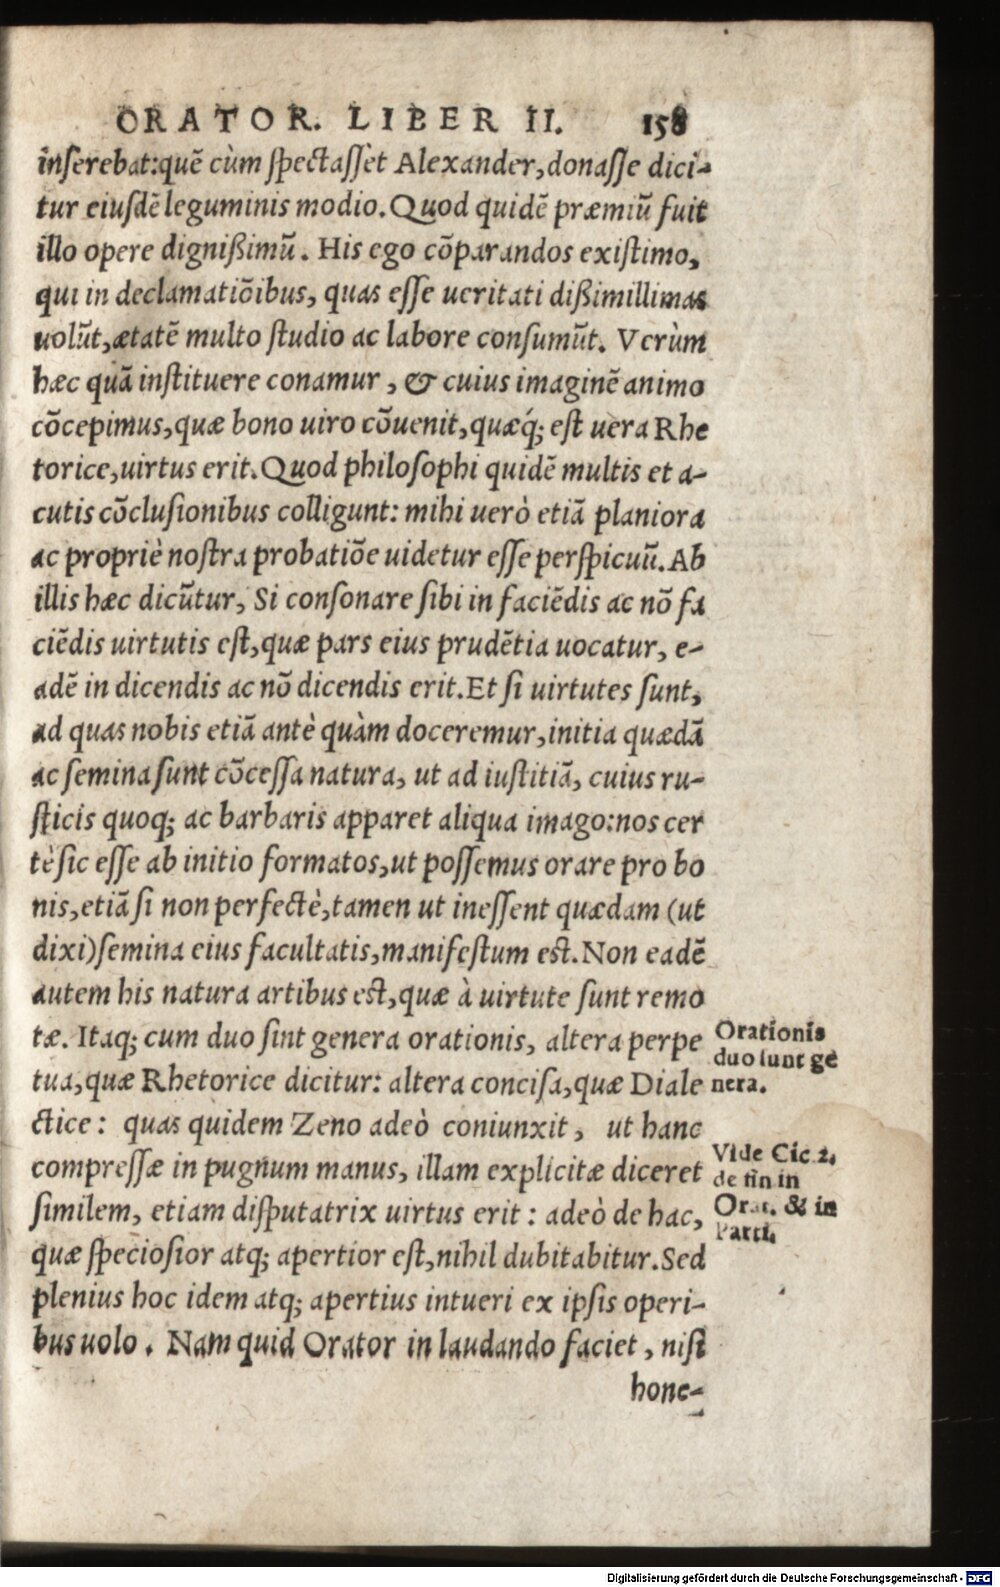 ORATOR. LIBER II. 158
inſerebat: quē cùm ſpectaſſèt Alexander, donaſſe dici-
tur eiuſdē leguminis modio. Quod quidē præmiū fuit
illo opere digniſſimū. His ego cōparandos exiſtimo,
qui in declamatiōibus, quas eſſe ueritati diſſimillimas
uolūt, ætatē multo ſtudio ac labore conſumūt. Verùm
hæc quā inſtituere conamur, & cuius imaginē animo
cōcepimus, quæ bono uiro cōuenit, quæq́; eſt uera Rhe
torice, uirtus erit. Quod philoſophi quidē multis et a-
cutis cōcluſionibus colligunt: mihi uerò etiā planiora
ac propriè noſtra probatiōe uidetur eſſe perſpicuū. Ab
illis hæc dicūtur, Si conſonare ſibi in faciēdis ac nō fa
ciēdis uirtutis eſt, quæ pars eius prudētia uocatur, e-
adē in dicendis ac nō dicendis erit. Et ſi uirtutes ſunt,
ad quas nobis etiā antè quàm doceremur, initia quædā
ac ſemina ſunt cōceſſa natura, ut ad iuſtitiā, cuius ru-
ſticis quoq; ac barbaris apparet aliqua imago: nos cer
tè ſic eſſe ab initio formatos, ut poſſemus orare pro bo
nis, etiā ſi non perfectè, tamen ut ineſſent quædam (ut
dixi) ſemina eius facultatis, manifeſtum eſt. Non eadē
autem his natura artibus eſt, quæ à uirtute ſunt remo
tæ. Itaq; cum duo ſint genera orationis, altera perpe
tua, quæ Rhetorice dicitur: altera conciſa, quæ Diale
ctice: quas quidem Zeno adeò coniunxit, ut hanc
compreſſæ in pugnum manus, illam explicitæ diceret
ſimilem, etiam diſputatrix uirtus erit: adeò de hac,
quæ ſpecioſior atq; apertior eſt, nihil dubitabitur. Sed
plenius hoc idem atq; apertius intueri ex ipſis operi-
bus uolo. Nam quid Orator in laudando faciet, niſi
hone-
Orationis
duo ſunt ge
nera.
Vide Cic. 2.
de fin in
Orat. & in
Parti.
Digitalisierung gefördert durch die Deutsche Forschungsgemeinschaft - DFG